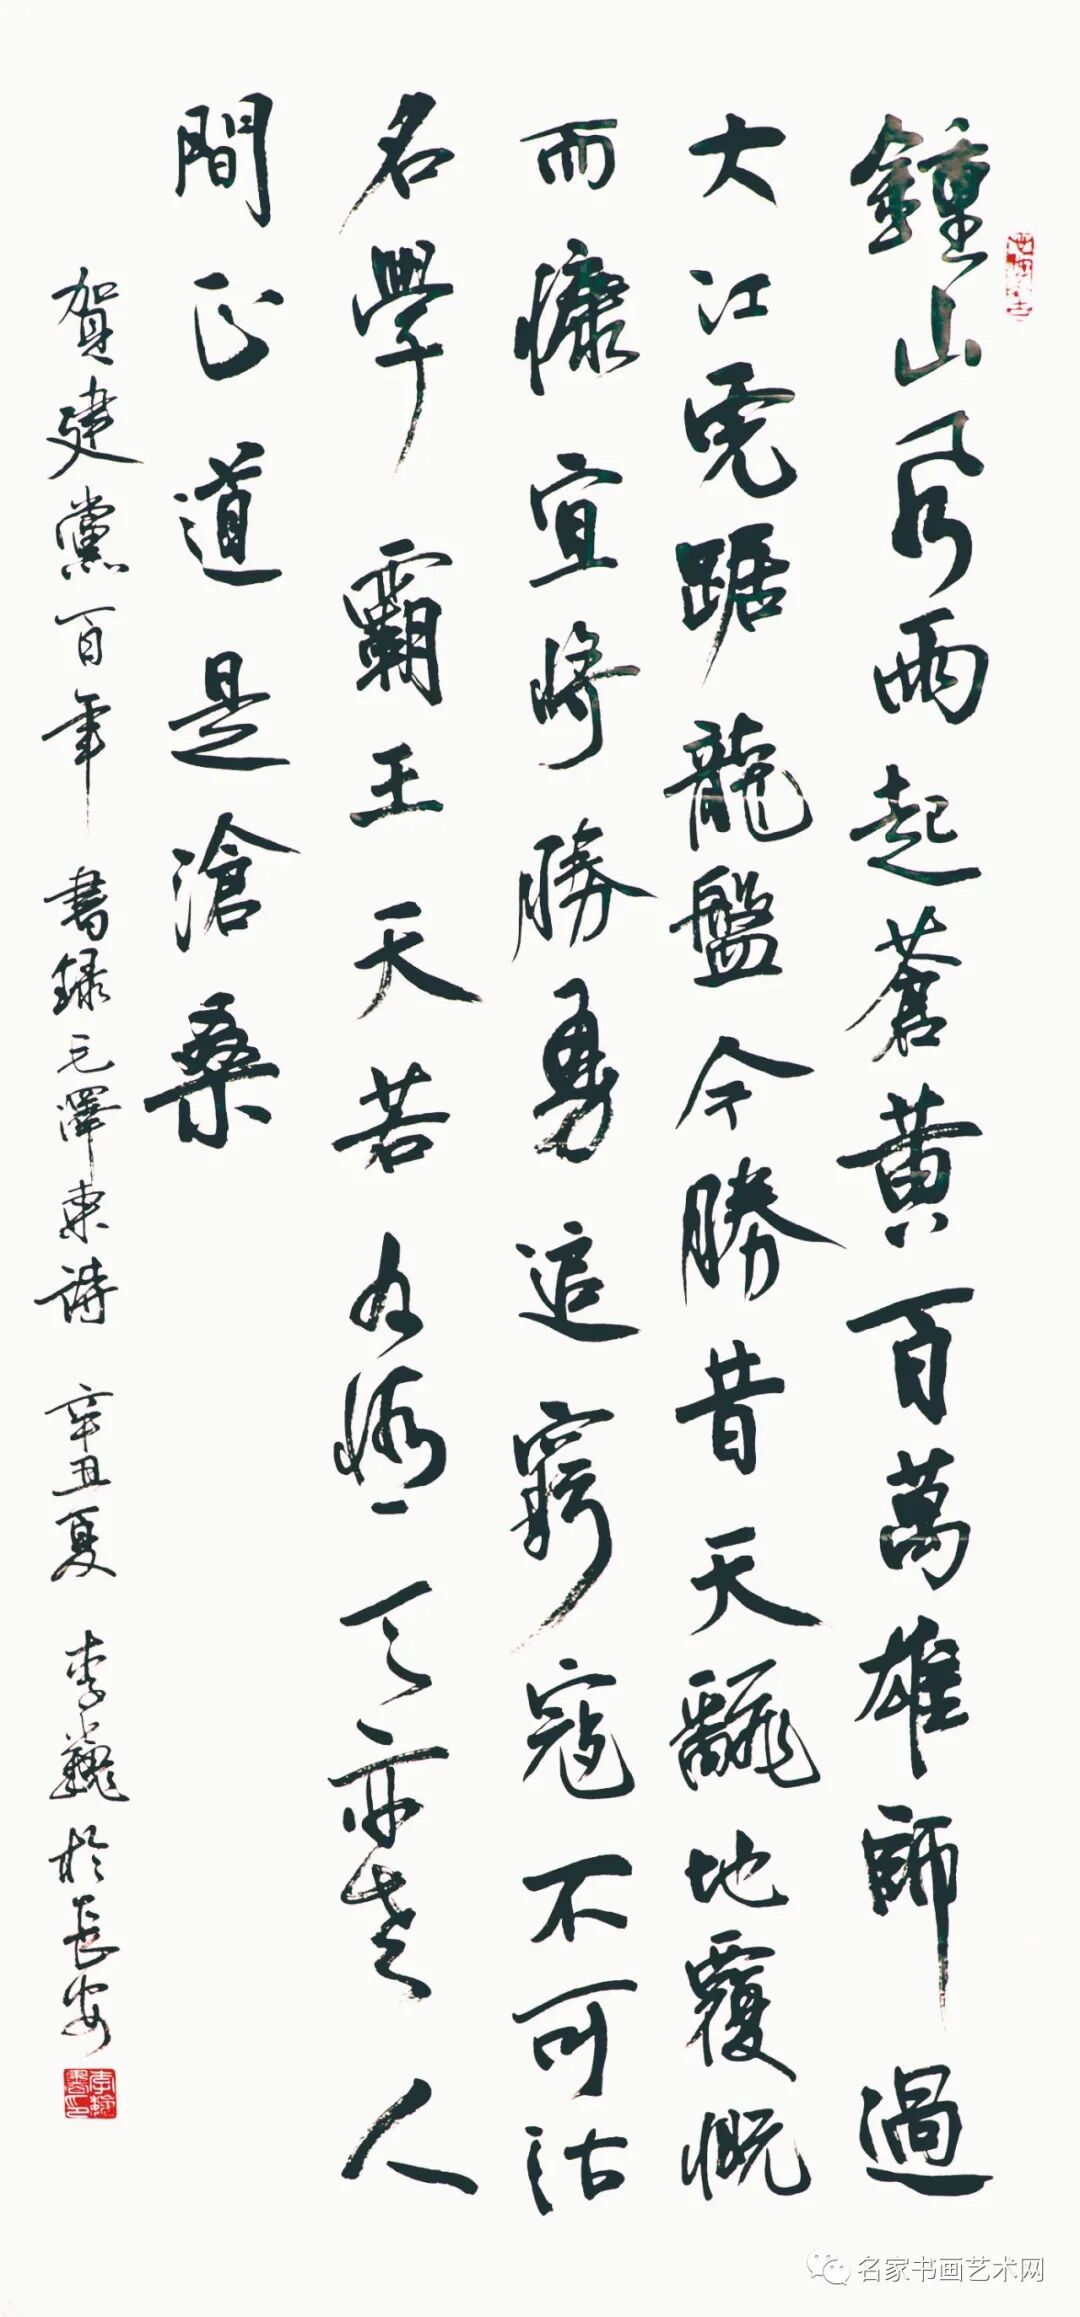 鍾山風雨起蒼黃百萬雄師過
大江虎踞龍盤今勝昔天飜地覆慨
而慷宜將勝勇追窮寇不可沽
名學霸王天若有情天亦老人
間正道是滄桑
賀建黨百年 書録毛澤東詩 辛丑夏 李巍於長安
名家书画艺术网